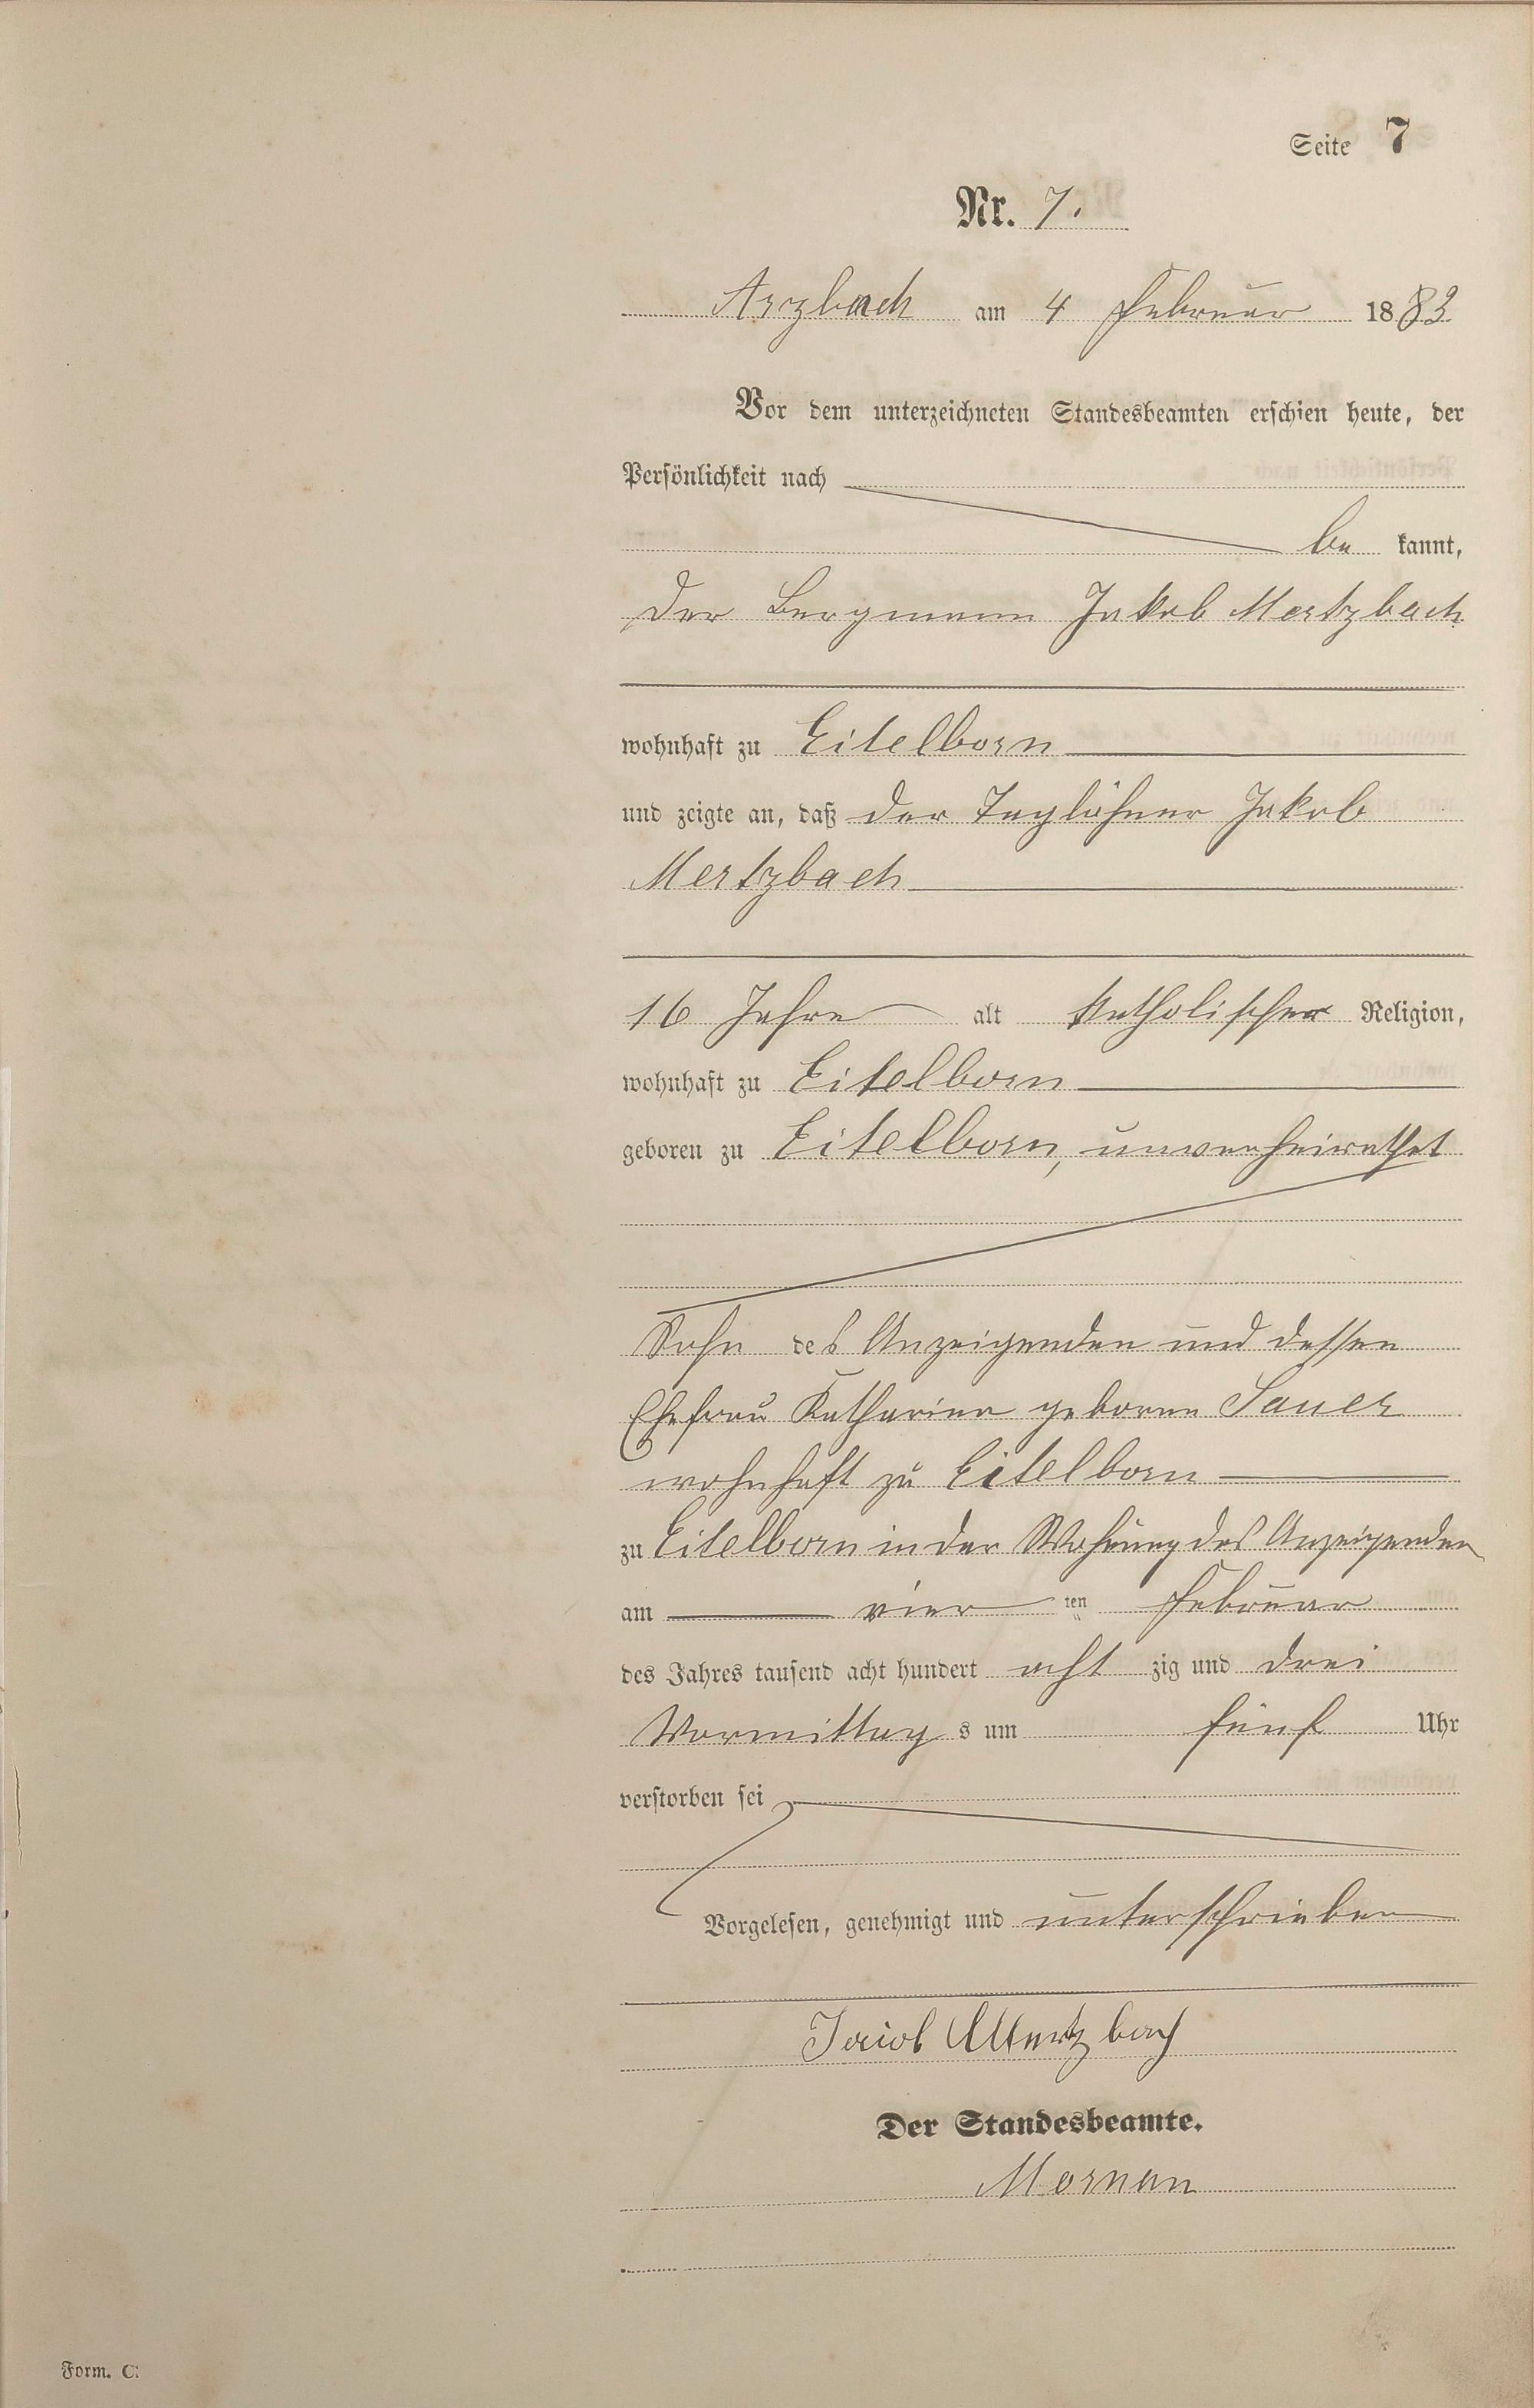 Seite 7
Nr. 7.
Arzbach am 4 Februar 1883
Vor dem unterzeichneten Standesbeamten erschien heute, der
Persönlichkeit nach
be kannt,
der Bergmann Jakob Mertzbach
wohnhaft zu Eitelborn
und zeigte an, daß der Taglöhner Jakob
Mertzbach
16 Jahre alt katholischer Religion,
wohnhaft zu Eitelborn
geboren zu Eitelborn, unverheirathet
Sohn des Anzeigenden und dessen
Ehefrau Katharina geborne Sauer
wohnhaft zu Eitelborn
zu Eitelborn in der Wohnung des Anzeigenden
am vier ten Februar
des Jahres tausend acht hundert acht zig und drei
Vormittag s um fünf Uhr
verstorben sei
Vorgelesen, genehmigt und unterschrieben
Jacob Mertzbach
Der Standesbeamte.
Form. C.